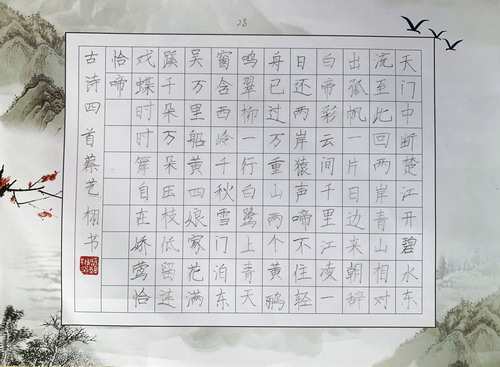 28
天门中断楚江开碧水东
流至此回两岸青山相对
出孤帆一片日边来朝辞
白帝彩云间千里江凌一
日还两岸猿声啼不住轻
舟已过万重山两个黄鹂
鸣翠柳一行白鹭上青天
窗含西岭千秋雪门泊东
吴万里船黄四娘家花满
蹊千朵万朵压枝低留连
戏蝶时时舞自在娇莺恰
恰啼
古诗四首蔡艺栩书